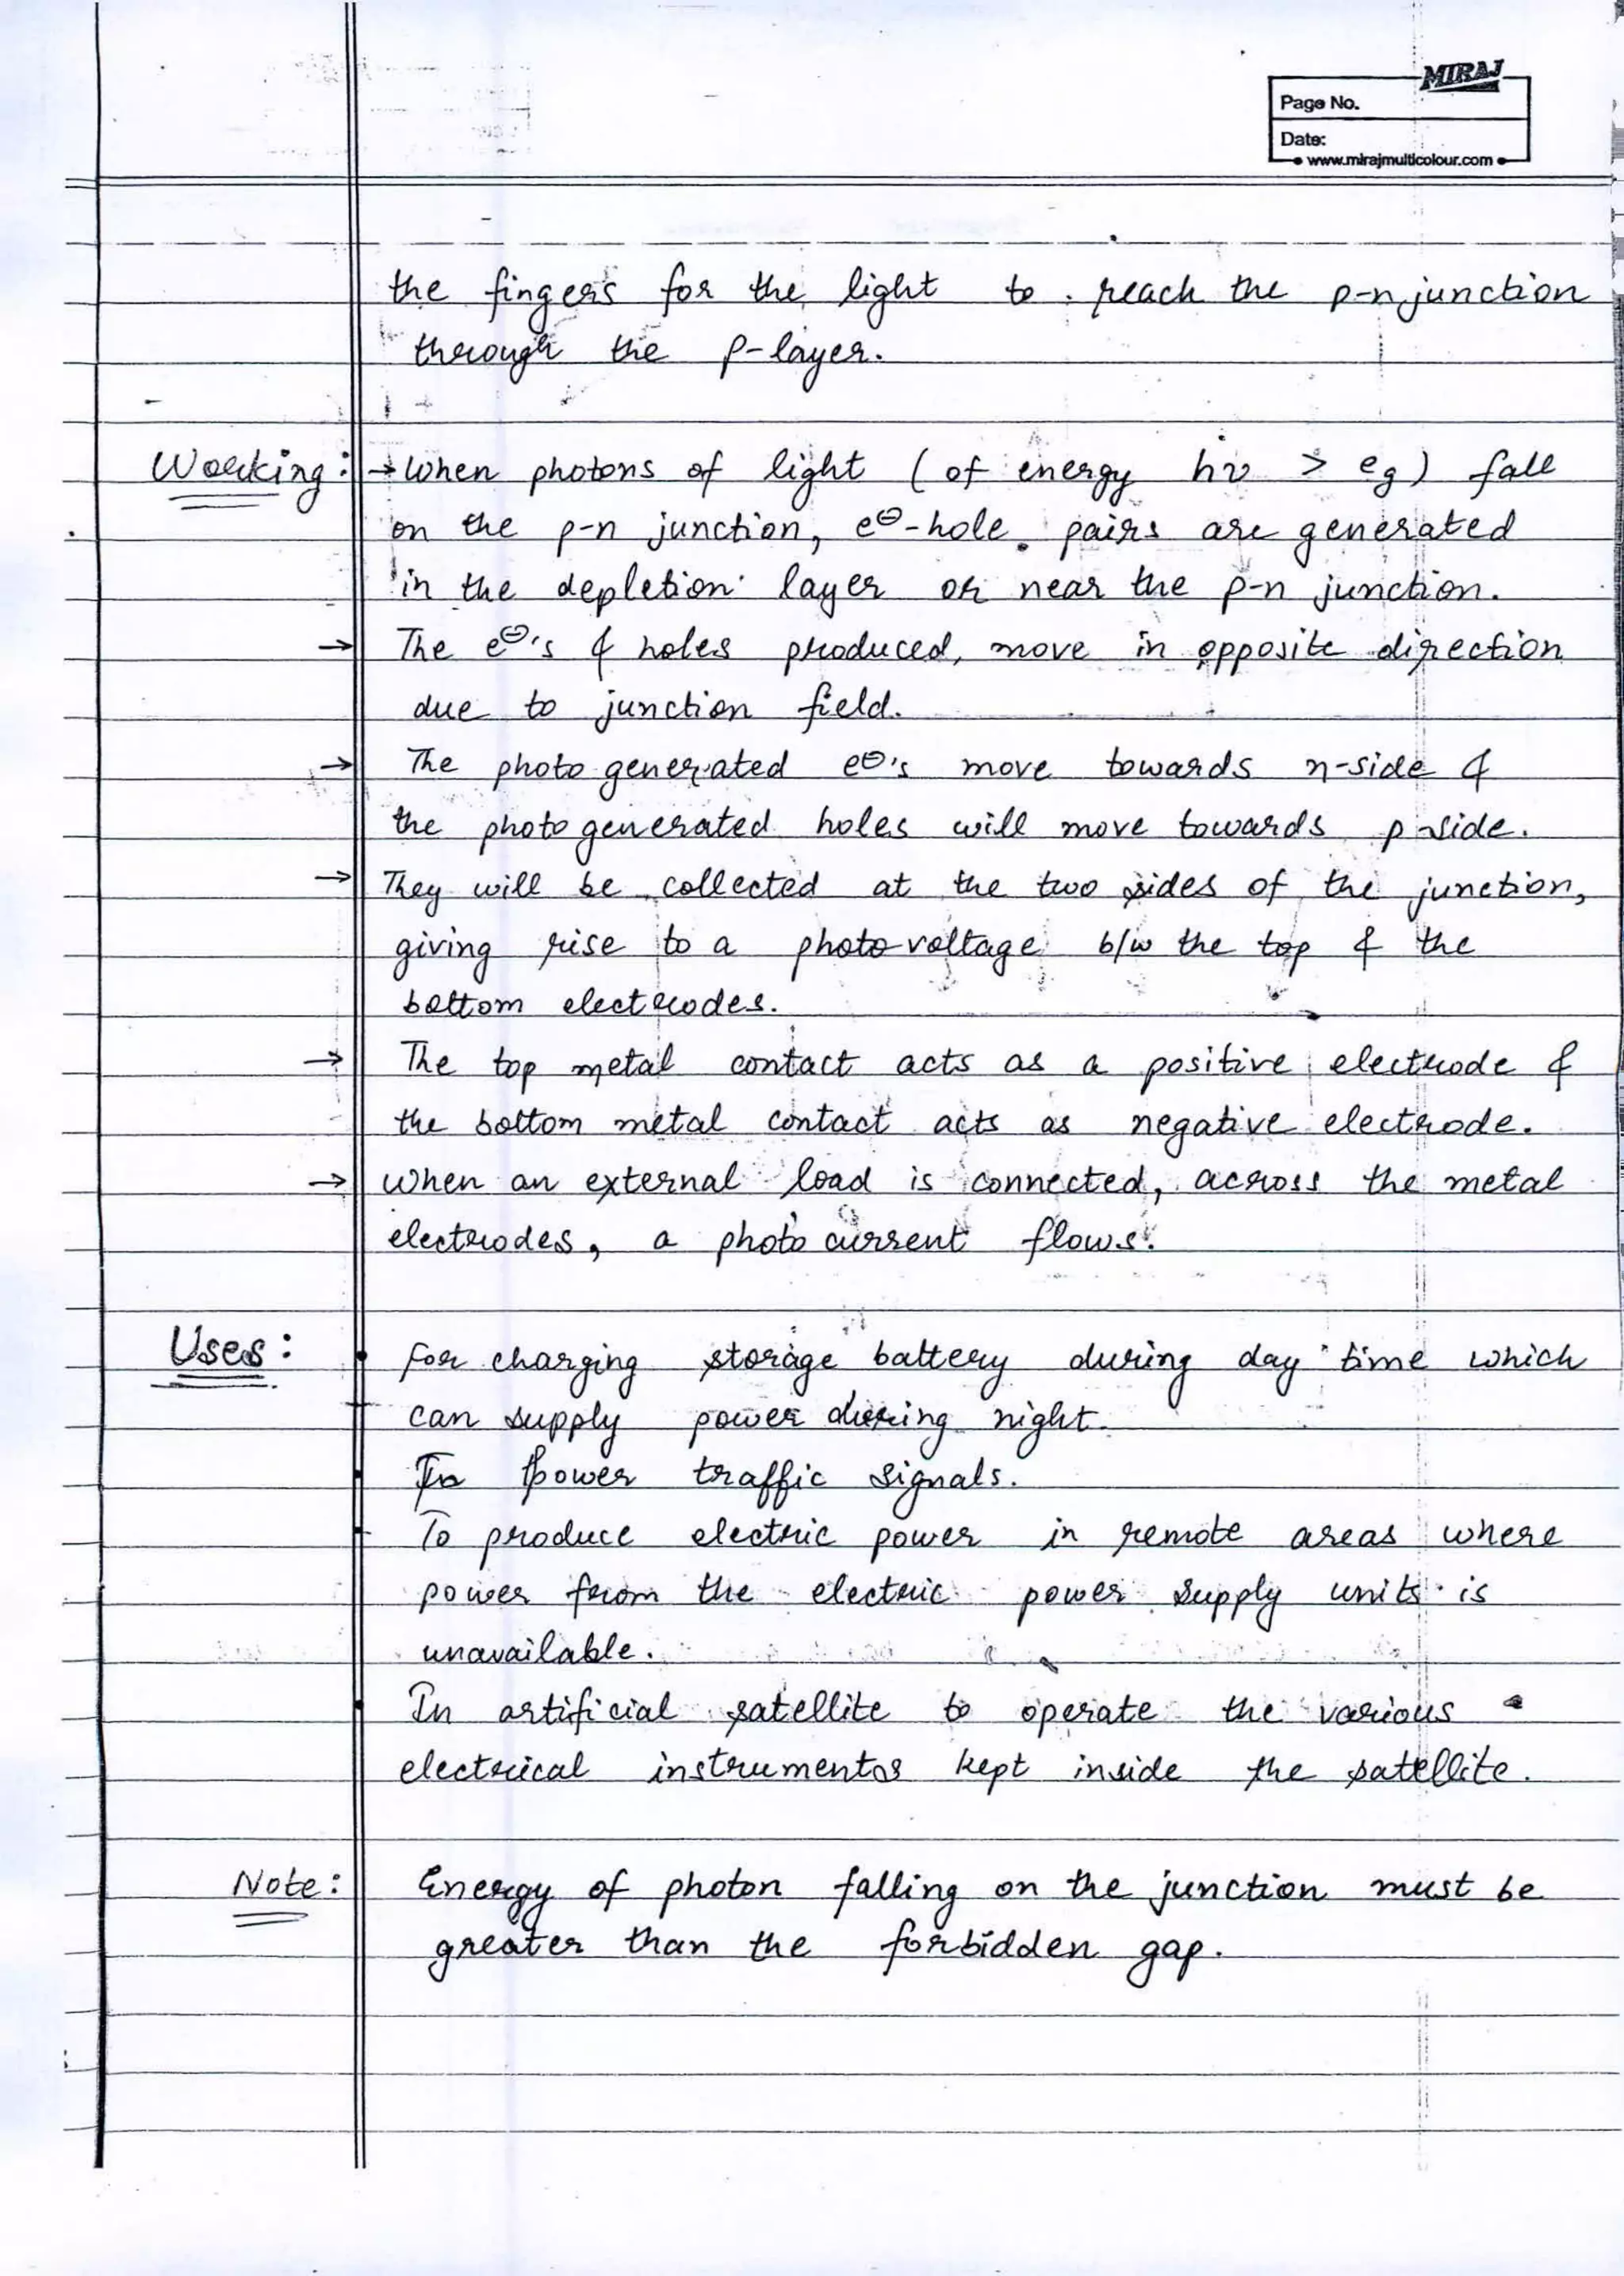 MIRAJ
Page No.
Date:
www.mirajmulticolour.com
the fingers for the light to reach the p-n junction
through the p-layer.
Working: → When photons of light (of energy hν > eg) fall
on the p-n junction, e⊖-hole pairs are generated
in the depletion layer or near the p-n junction.
→ The e⊖'s & holes produced, move in opposite direction
due to junction field.
→ The photo generated e⊖'s move towards n-side &
the photo generated holes will move towards p-side.
→ They will be collected at the two sides of the junction,
giving rise to a photo voltage b/w the top & the
bottom electrodes.
→ The top metal contact acts as a positive electrode &
the bottom metal contact acts as negative electrode.
→ When an external load is connected, across the metal
electrodes, a photo current flows.
Uses: • For charging storage battery during day time which
can supply power during night.
• To power traffic signals.
• To produce electric power in remote areas where
power from the electric power supply units is
unavailable.
• In artificial satellite to operate the various
electrical instruments kept inside the satellite.
Note: Energy of photon falling on the junction must be
greater than the forbidden gap.